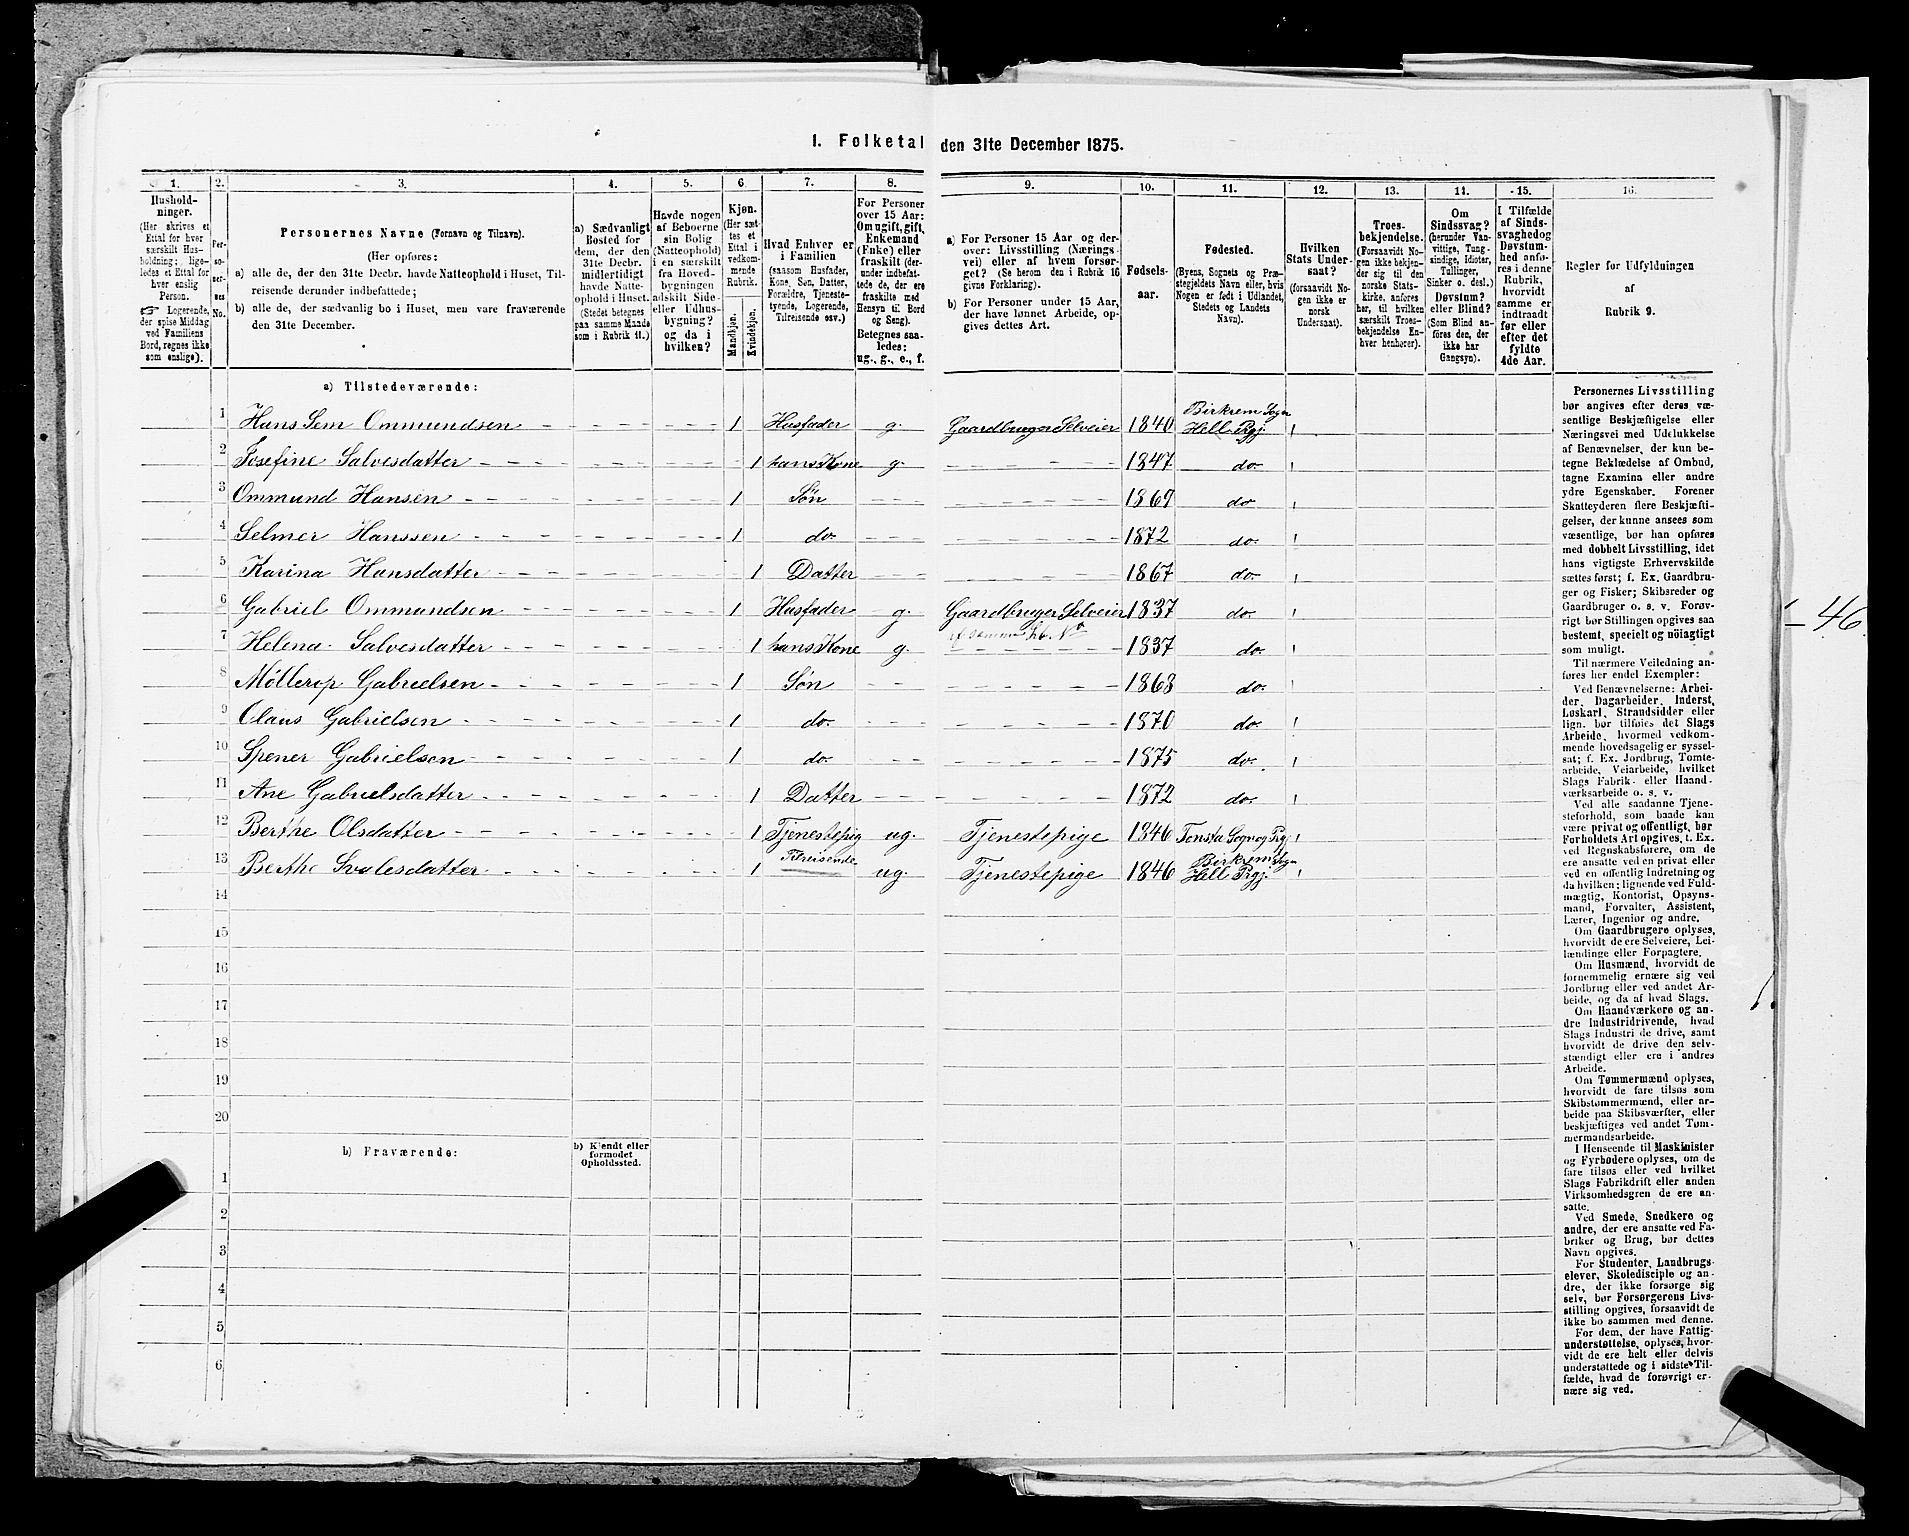 1. Folketal den 31te December 1875.
1. 2. 3. 4. 5. 6. 7. 8. 9. 10. 11. 12. 13. 14. 15. 16.
Hushold-
ninger.
(Her skrives et
Ettal for hver
særskilt Hus-
holdning; lige-
ledes et Ettal for
hver enslig
Person.
☞ Logerende,
der spise Middag
ved Familiens
Bord, regnes ikke
som enslige).
Per-
so-
ner-
nes
No.
Personernes Navne (Fornavn og Tilnavn).
(Her opføres:
a) alle de, der den 31te Decbr. havde Natteophold i Huset, Til-
reisende derunder indbefattede;
b) alle de, der sædvanlig bo i Huset, men vare fraværende
den 31te December.
a) Sædvanligt
Bosted for
dem, der den
31te Decbr.
midlertidigt
havde Natte-
ophold i Huset.
(Stedet betegnes
paa samme Maade
som i Rubrik 11.)
Havde nogen
af Beboerne
sin Bolig
(Natteophold)
i en særskilt
fra Hoved-
bygningen
adskilt Side-
eller Udhus-
bygning?
og da i
hvilken?
Kjøn.
(Her sæt-
tes et
Ettal i
vedkom-
mende
Rubrik.
Mandkjøn.
Kvindekjøn.
Hvad Enhver er
i Familien
(saasom Husfader,
Kone, Søn, Datter,
Forældre, Tjeneste-
tyende, Logerende,
Tilreisende osv.)
For Personer
over 15 Aar:
Om ugift, gift,
Enkemand
(Enke) eller
fraskilt (der-
under indbefat-
tede de, der ere
fraskilte med
Hensyn til Bord
og Seng).
Betegnes saa-
ledes:
ug., g., e., f.
a) For Personer 15 Aar og der-
over: Livsstilling (Nærings-
vei) eller af hvem forsør-
get? (Se herom den i Rubrik 16
givne Forklaring).
b) For Personer under 15 Aar,
der have lønnet Arbeide, op-
gives dettes Art.
Fødsels-
aar.
Fødested.
(Byens, Sognets og Præ-
stegjeldets Navn eller, hvis
Nogen er født i Udlandet,
Stedets og Landets
Navn).
Hvilken
Stats Under-
saat?
(forsaavidt No-
gen ikke er
norsk
Undersaat).
Troes-
bekjendelse.
(Forsaavidt No-
gen ikke bekjen-
der sig til den
norske Stats-
kirke, anføres
her, til hvilken
særskilt Troes-
bekjendelse En-
hver henhører).
Om
Sindssvag?
(herunder Van-
vittige, Tung-
sindige, Idioter,
Tullinger,
Sinker o. desl.)
Døvstum?
eller Blind?
(Som Blind an-
føres den, der
ikke har
Gangsyn).
I Tilfælde
af Sinds-
svaghed og
Døvstum-
hed anfø-
res i denne
Rubrik,
hvorvidt
samme er
indtraadt
før eller
efter det
fyldte
4de Aar.
Regler for Udfyldningen
af
Rubrik 9.
a) Tilstedeværende:
1 Hans Sem Ommundsen 1 Husfader g. Gaardbruger Selveier 1840 Birkrem Sogn Hell. Prgj. 1
2 Josefine Salvesdatter 1 hans Kone g. 1847 do. 1
3 Ommund Hansen 1 Søn 1869 do 1
4 Selmer Hanssen 1 do. 1872 do. 1
5 Karina Hansdatter 1 Datter 1867 do. 1
6 Gabriel Ommundsen 1 Husfader g. Gaardbruger Selveier 1837 do. 1
af samme Lb. No
7 Helena Salvesdatter 1 hans Kone g. 1837 do. 1
8 Møllerop Gabrielsen 1 Søn 1868 do. 1
9 Olaus Gabrielsen 1 do. 1870 do. 1
10 Spener Gabrielsen 1 do. 1875 do. 1
11 Ane Gabrielsdatter 1 Datter 1872 do. 1
12 Berthe Olsdatter 1 Tjenestepig ug. Tjenestepige 1846 Tonsta Sogn og Prgj 1
13 Berthe Svalesdatter 1 Tilreisende ug. Tjenestepige 1846 Birkrem Sogn Hell Prgj. 1
14
15
16
17
18
19
20
b) Fraværende:
b) Kjendt eller
formodet
Opholdssted.
1
2
3
4
5
6
Personernes Livsstilling
bør angives efter deres væ-
sentlige Beskjæftigelse eller
Næringsvei med Udelukkelse
af Benævnelser, der kun be-
tegne Beklædelse af Ombud,
tagne Examina eller andre
ydre Egenskaber. Forener
Skatteyderen flere Beskjæfti-
gelser, der kunne ansees som
væsentlige, bør han opføres
med dobbelt Livsstilling, idet
hans vigtigste Erhvervskilde
sættes først; f. Ex. Gaardbru-
ger og Fisker; Skibsreder og
Gaardbruger o. s. v. Forøv-
rigt bør Stillingen opgives saa
bestemt, specielt og nöiagtigt
som muligt.
Til nærmere Veiledning an-
føres her endel Exempler:
Ved Benævnelserne: Arbei-
der, Dagarbeider, Inderst,
Løskarl, Strandsidder eller
lign. bør tilføies det Slags
Arbeide, hvormed vedkom-
mende hovedsagelig er syssel-
sat; f. Ex. Jordbrug, Tomte-
arbeide, Veiarbeide, hvilket
Slags Fabrik- eller Haand-
værksarbeide o. s. v.
Ved alle saadanne Tjene-
steforhold, som baade kan
være privat og offentligt, bør
Forholdets Art opgives, t. Ex.
ved Regnskabsførere, om de
ere ansatte ved en privat eller
ved en offentlig Indretning og
da hvilken; lignende ved Fuld-
mægtig, Kontorist, Opsyns-
mand, Forvalter, Assistent,
Lærer, Ingeniør og andre.
Om Gaardbrugere oplyses,
hvorvidt de ere Selveiere, Lei-
lændinge eller Forpagtere.
Om Husmænd, hvorvidt de
fornemmelig ernære sig ved
Jordbrug eller ved andet Ar-
beide, og da af hvad Slags.
Om Haandværkere og an-
dre Industridrivende, hvad
Slags Industri de drive, samt
hvorvidt de drive den selv-
stændigt eller ere i andres
Arbeide.
Om Tømmermænd oplyses,
hvorvidt de fare tilsøs som
Skibstømmermænd, eller ar-
beide paa Skibsværfter, eller
beskjæftiges ved andet Tøm-
mermandsarbeide.
I Henseende til Maskinister
og Fyrbødere oplyses, om de
fare tilsøs eller ved hvilket
Slags Fabrikdrift eller anden
Virksomhedsgren de ere an-
satte.
Ved Smede, Snedkere og
andre, der ere ansatte ved Fa-
briker og Brug, bør dettes
Navn opgives.
For Studenter, Landbrugs-
elever, Skoledisciple og an-
dre, der ikke forsørge sig
selv, bør Forsørgerens Livs-
stilling opgives, forsaavidt de
ikke bo sammen med denne.
For dem, der have Fattig-
understøttelse, oplyses, hvor-
vidt de ere helt eller delvis
understøttede og i sidste Til-
fælde, hvad de forøvrigt er-
nære sig ved.
46